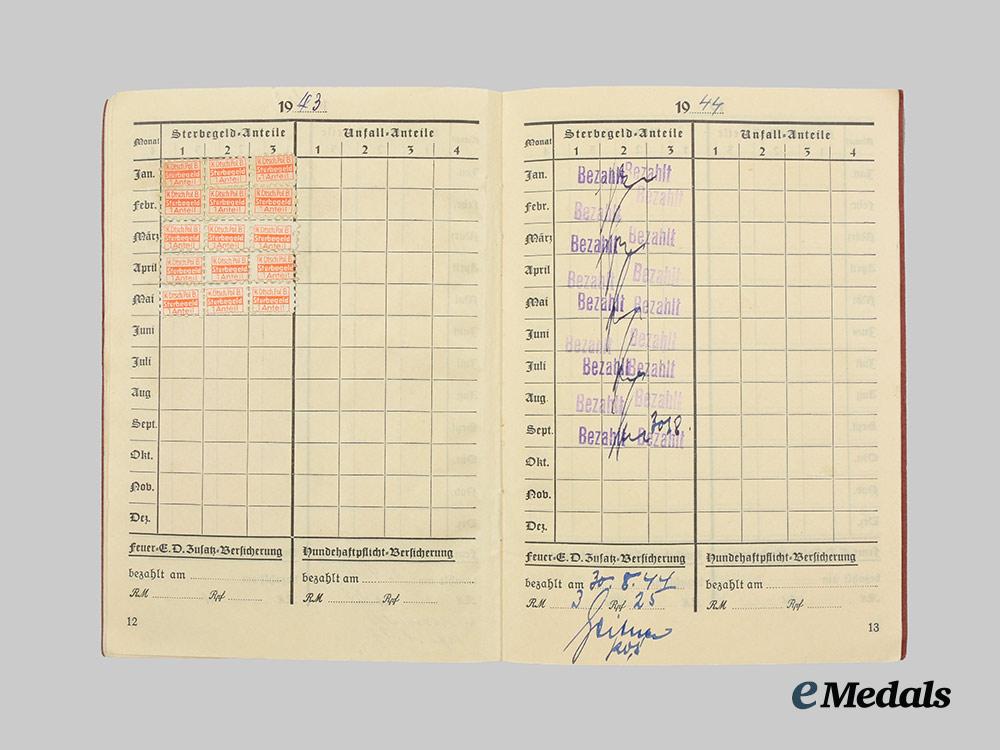 1943
Monat Sterbegeld-Anteile Unfall-Anteile
1 2 3 1 2 3 4
Jan. K Dtsch.Pol.B. Sterbegeld 1 Anteil K Dtsch.Pol.B. Sterbegeld 1 Anteil K Dtsch.Pol.B. Sterbegeld 1 Anteil
Febr. K Dtsch.Pol.B. Sterbegeld 1 Anteil K Dtsch.Pol.B. Sterbegeld 1 Anteil K Dtsch.Pol.B. Sterbegeld 1 Anteil
März K Dtsch.Pol.B. Sterbegeld 1 Anteil K Dtsch.Pol.B. Sterbegeld 1 Anteil K Dtsch.Pol.B. Sterbegeld 1 Anteil
April K Dtsch.Pol.B. Sterbegeld 1 Anteil K Dtsch.Pol.B. Sterbegeld 1 Anteil K Dtsch.Pol.B. Sterbegeld 1 Anteil
Mai K Dtsch.Pol.B. Sterbegeld 1 Anteil K Dtsch.Pol.B. Sterbegeld 1 Anteil K Dtsch.Pol.B. Sterbegeld 1 Anteil
Juni
Juli
Aug
Sept.
Okt.
Nov.
Dez.
Feuer-E.D.Zusatz-Versicherung Hundehaftpflicht-Versicherung
bezahlt am bezahlt am
RM Rpf RM Rpf
12
1944
Monat Sterbegeld-Anteile Unfall-Anteile
1 2 3 1 2 3 4
Jan. Bezahlt Bezahlt
Febr. Bezahlt Bezahlt
März Bezahlt Bezahlt
April Bezahlt Bezahlt
Mai Bezahlt Bezahlt
Juni Bezahlt Bezahlt
Juli Bezahlt Bezahlt
Aug. Bezahlt Bezahlt
Sept. Bezahlt Bezahlt 30.8.
Okt.
Nov.
Dez.
Feuer-E.D.Zusatz-Versicherung Hundehaftpflicht-Versicherung
bezahlt am 30.8.44 bezahlt am
RM 3 Rpf 25 RM Rpf
13
eMedals